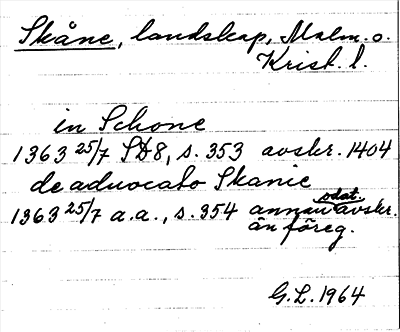 Skåne, landskap, Malm. o.
Krist. l.
in Schone
1363 25/7 SD8, s. 353 avskr. 1404
de aduocato Skanie
1363 25/7 a.a., s. 354 annan odat. avskr.
än föreg.
G.L. 1964